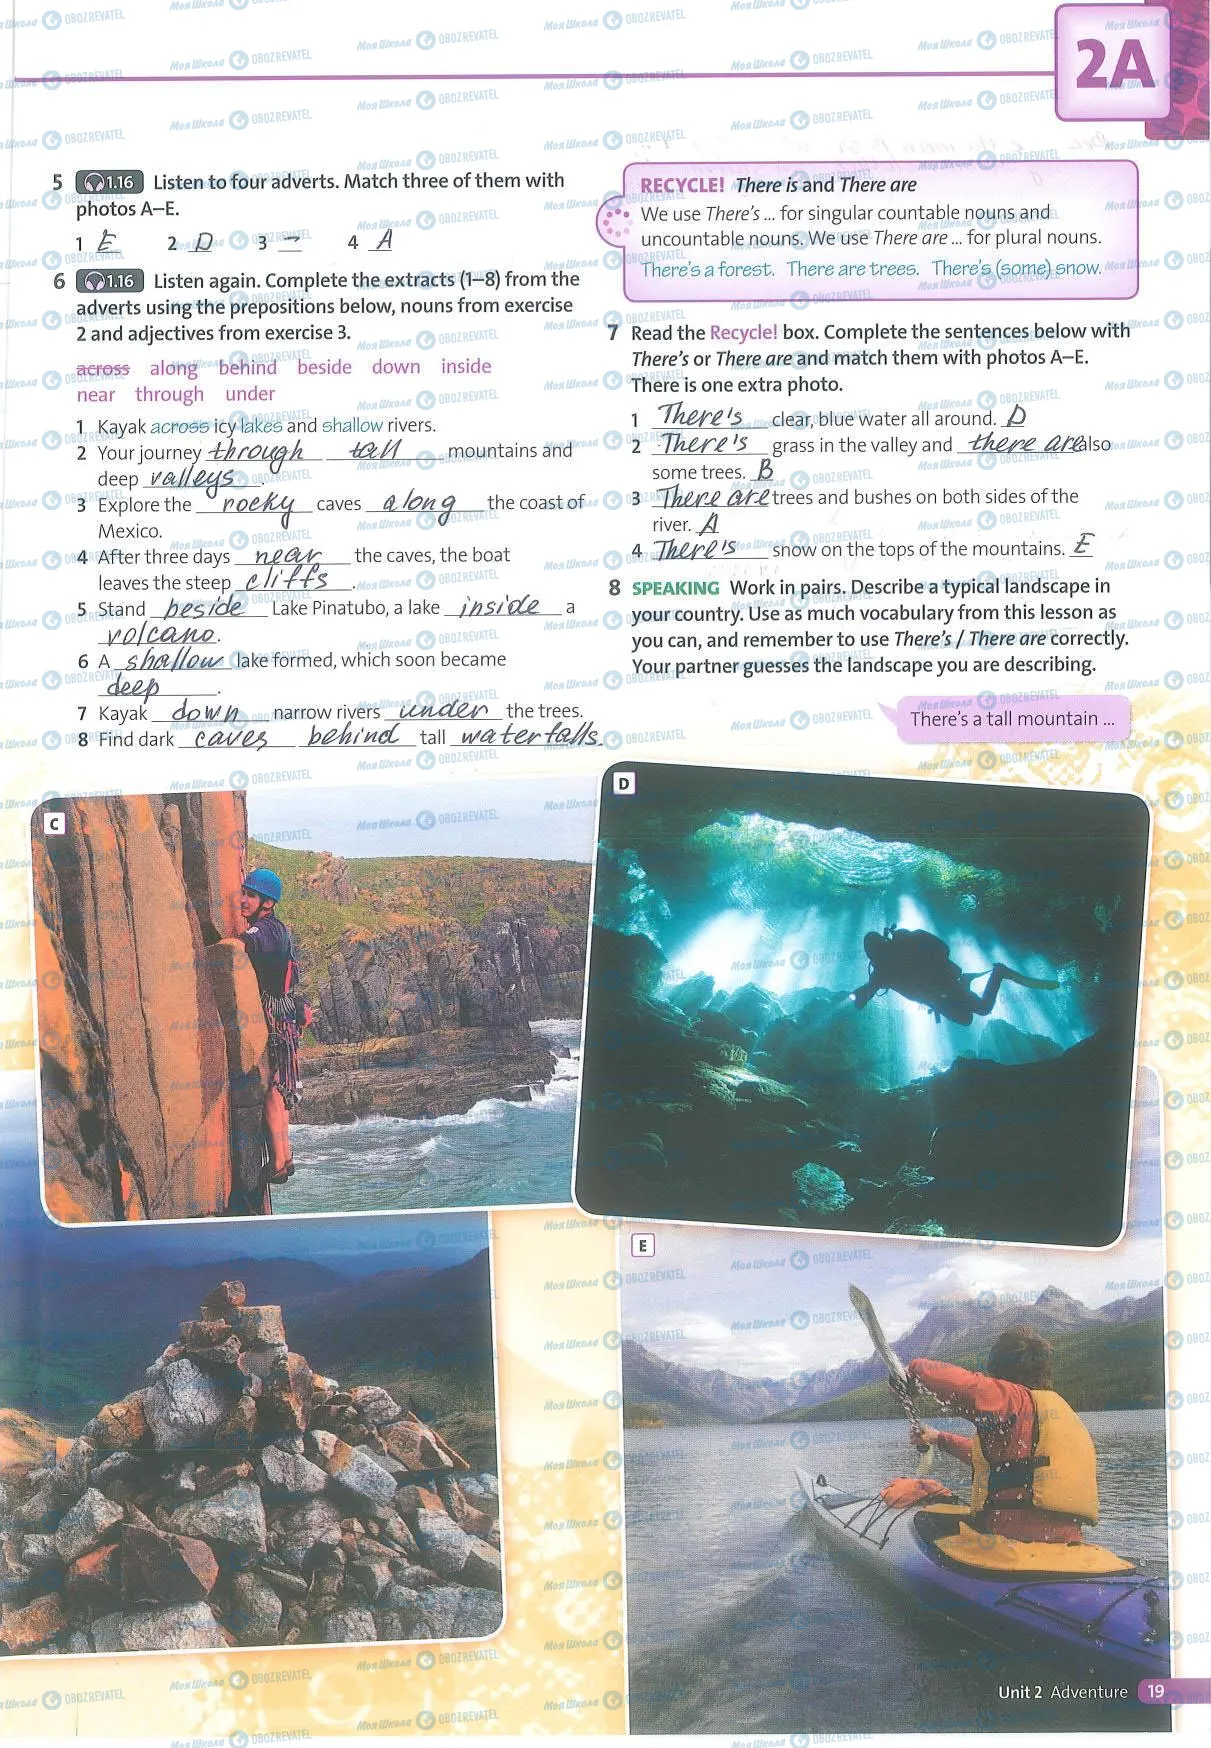 2A
5 1.16 Listen to four adverts. Match three of them with
photos A–E.
1 E 2 D 3 – 4 A
6 1.16 Listen again. Complete the extracts (1–8) from the
adverts using the prepositions below, nouns from exercise
2 and adjectives from exercise 3.
across along behind beside down inside
near through under
1 Kayak across icy lakes and shallow rivers.
2 Your journey through tall mountains and
deep valleys.
3 Explore the rocky caves along the coast of
Mexico.
4 After three days near the caves, the boat
leaves the steep cliffs.
5 Stand beside Lake Pinatubo, a lake inside a
volcano.
6 A shallow lake formed, which soon became
deep.
7 Kayak down narrow rivers under the trees.
8 Find dark caves behind tall waterfalls.
RECYCLE! There is and There are
We use There's ... for singular countable nouns and
uncountable nouns. We use There are ... for plural nouns.
There's a forest. There are trees. There's (some) snow.
7 Read the Recycle! box. Complete the sentences below with
There's or There are and match them with photos A–E.
There is one extra photo.
1 There's clear, blue water all around. D
2 There's grass in the valley and there are also
some trees. B
3 There are trees and bushes on both sides of the
river. A
4 There's snow on the tops of the mountains. E
8 SPEAKING Work in pairs. Describe a typical landscape in
your country. Use as much vocabulary from this lesson as
you can, and remember to use There's / There are correctly.
Your partner guesses the landscape you are describing.
There's a tall mountain ...
C
D
E
Unit 2 Adventure 19
Моя Школа OBOZREVATEL